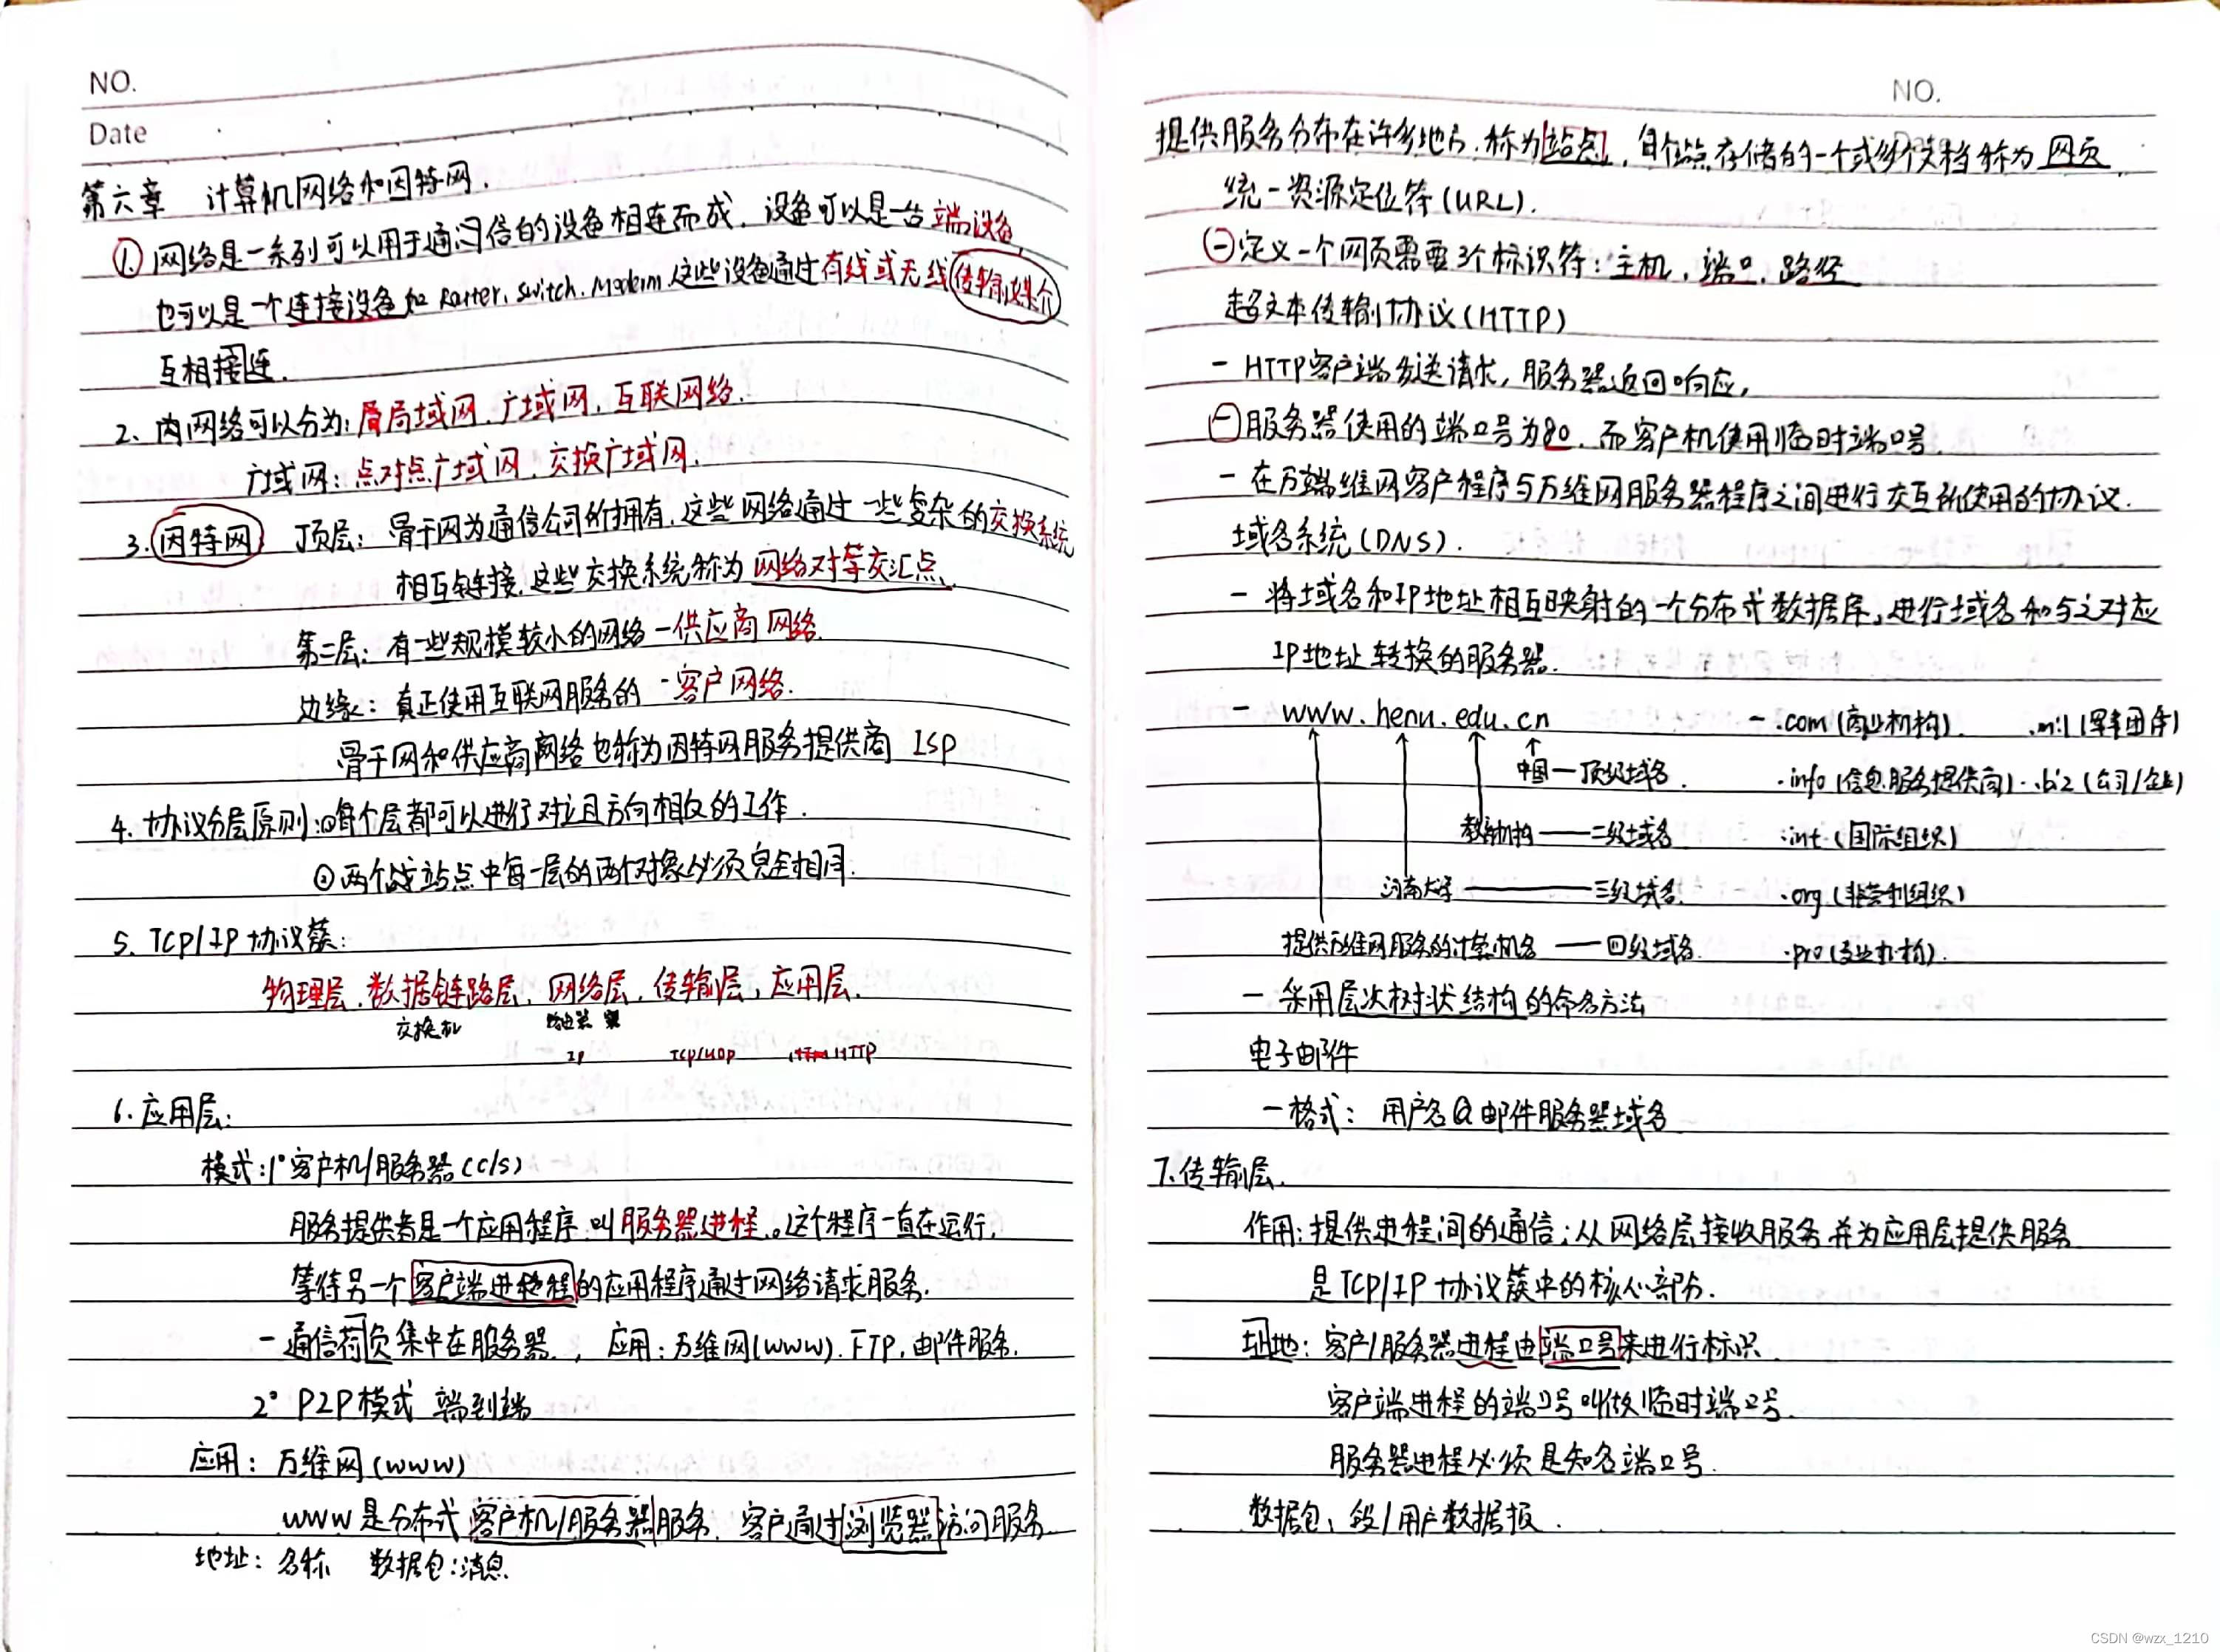 NO.
Date
第六章 计算机网络和因特网.
1. 网络是一系列可以用于通信的设备相连而成. 设备可以是一台端设备,
也可以是一个连接设备如 Router、Switch、Modem 这些设备通过有线或无线传输媒介
互相接连.
2、内网络可以分为: 局域网、广域网、互联网络.
广域网: 点对点广域网、交换广域网.
3. 因特网 顶层: 骨干网为通信公司所拥有, 这些网络通过一些复杂的交换系统
相互链接, 这些交换系统称为网络对等交汇点.
第二层: 有一些规模较小的网络 - 供应商网络.
边缘: 真正使用互联网服务的 - 客户网络.
骨干网和供应商网络也称为因特网服务提供商 ISP
4. 协议分层原则: ①每个层都可以进行对立且方向相反的工作.
②两个站点中每一层的两个对象必须完全相同.
5. TCP/IP 协议蔟:
物理层、数据链路层、网络层、传输层、应用层.
交换机 路由器
IP TCP/UDP HTTP
6. 应用层:
模式: 1° 客户机/服务器 (C/S)
服务提供者是一个应用程序, 叫服务器进程。这个程序一直在运行,
等待另一个客户端进程的应用程序通过网络请求服务.
- 通信荷负集中在服务器, 应用: 万维网(WWW). FTP, 邮件服务.
2° P2P模式 端到端
应用: 万维网(WWW)
WWW是分布式客户机/服务器服务, 客户通过浏览器访问服务
地址: 名称 数据包: 消息
NO.
Date
提供服务分布在许多地方, 称为站点, 每个站点存储的一个或多个文档称为网页
统一资源定位符(URL).
- 定义一个网页需要3个标识符: 主机, 端口, 路径
超文本传输协议(HTTP)
- HTTP客户端发送请求, 服务器返回响应,
- 服务器使用的端口号为80, 而客户机使用临时端口号.
- 在万端维网客户程序与万维网服务器程序之间进行交互所使用的协议.
域名系统(DNS).
- 将域名和IP地址相互映射的一个分布式数据库, 进行域名和与之对应
IP地址转换的服务器.
- www.henu.edu.cn - .com (商业机构). .mil (军事团体)
中国 — 顶级域名. .info (信息服务提供商). .biz (公司/企业)
教育机构 — 二级域名 .int (国际组织)
河南大学 — 三级域名 .org (非营利组织)
提供万维网服务的计算机名 — 四级域名 .pro (专业机构).
- 采用层次树状结构的命名方法
电子邮件
- 格式: 用户名@邮件服务器域名
7. 传输层.
作用: 提供进程间的通信; 从网络层接收服务并为应用层提供服务
是TCP/IP 协议蔟中的核心部分.
址地: 客户/服务器进程由端口号来进行标识.
客户端进程的端口号叫做临时端口号.
服务器进程必须是知名端口号.
数据包: 段/用户数据报.
CSDN @wzx_1210